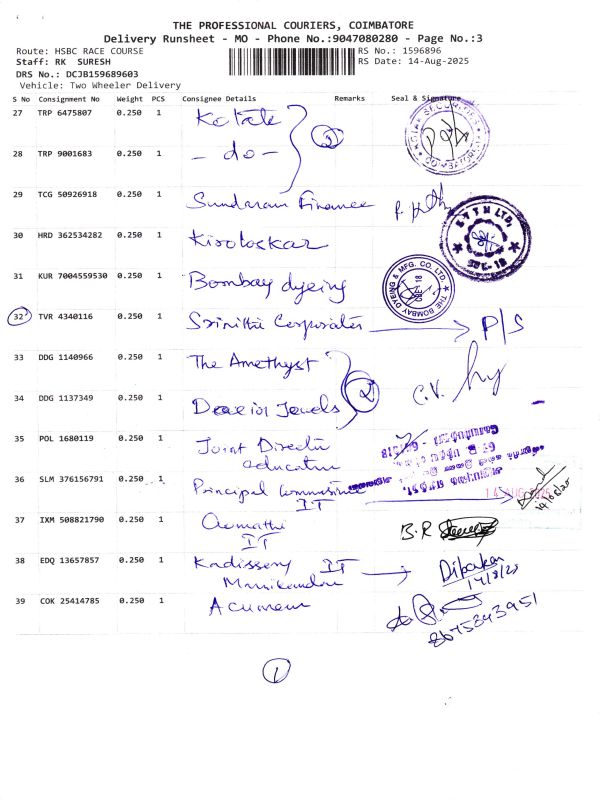 THE PROFESSIONAL COURIERS, COIMBATORE
Delivery Runsheet - MO - Phone No.:9047080280 - Page No.:3
Route: HSBC RACE COURSE
RS No.: 1596896
Staff: RK SURESH
RS Date: 14-Aug-2025
DRS No.: DCJB159689603
Vehicle: Two Wheeler Delivery
S No Consignment No Weight PCS Consignee Details Remarks Seal & Signature
27 TRP 6475807 0.250 1 Kotak
2
28 TRP 9001683 0.250 1 - do -
29 TCG 50926918 0.250 1 Sundaram Finance
30 HRD 362534282 0.250 1 Kiroloskar
31 KUR 7004559530 0.250 1 Bombay dyeing
THE BOMBAY DYEING & MFG. CO. LTD.
32 TVR 4340116 0.250 1 Srinithi Corporates P/S
33 DDG 1140966 0.250 1 The Amethyst
2
C.V.
34 DDG 1137349 0.250 1 Jewels
35 POL 1680119 0.250 1 Joint Director
education
36 SLM 376156791 0.250 1 Principal Commissioner
IT
14 AUG 2025
14/8/25
37 IXM 508821790 0.250 1
IT
B.R
38 EDQ 13657857 0.250 1 IT
Manikandan
Dibakar
14/8/25
39 COK 25414785 0.250 1 Acumen
8675343951
1